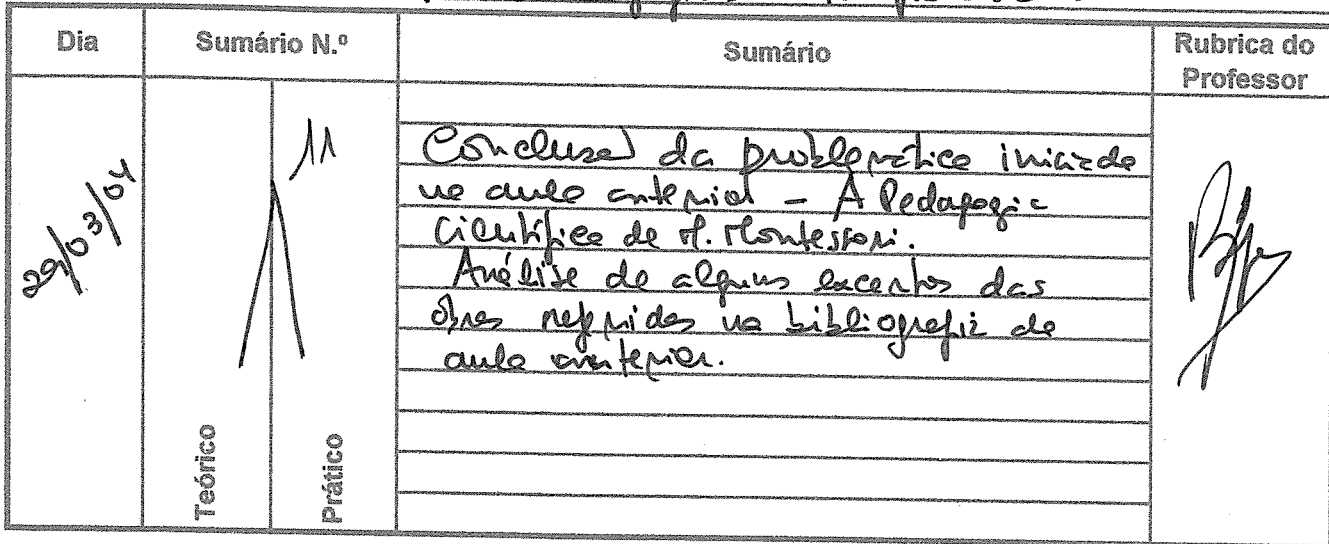 Dia
Sumário N.º
Sumário
Rubrica do
Professor
29/03/04
11
Conclusão da problemática iniciada
na aula anterior - A Pedagogia
Científica de M. Montessori.
Análise de alguns excertos das
obras referidas na bibliografia da
aula anterior.
Teórico
Prático